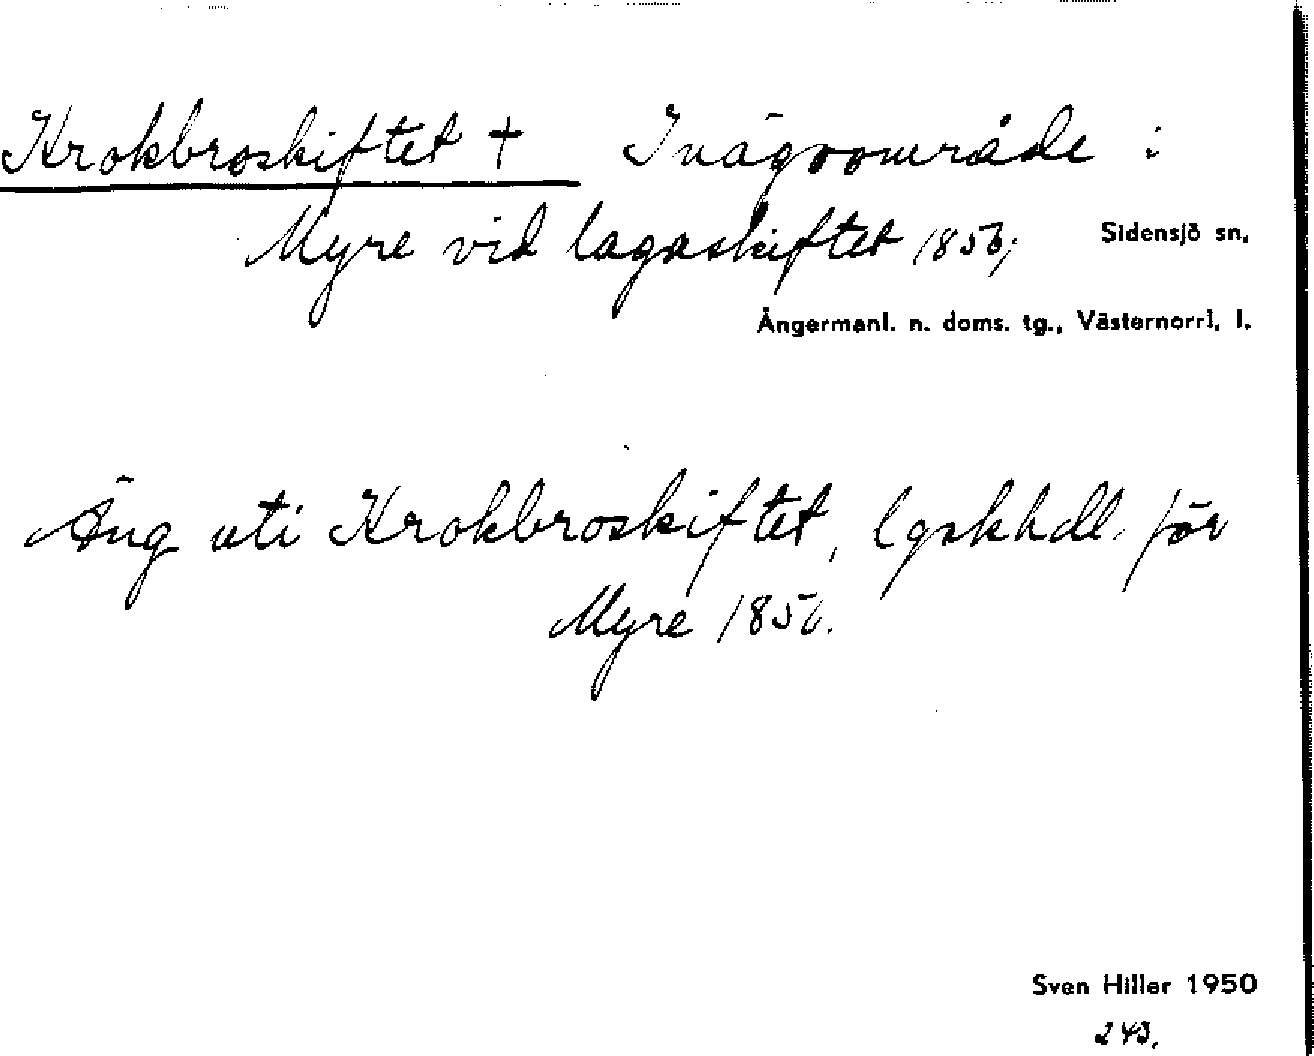 Krokbroskiftet + Inägoområde i
Myre vid lagaskiftet 1856,
Sidensjö sn.
Ångermanl. n. doms. tg., Västernorrl. l.
Äng uti Krokbroskiftet, lgskhdl. för
Myre 1856.
Sven Hiller 1950
243.